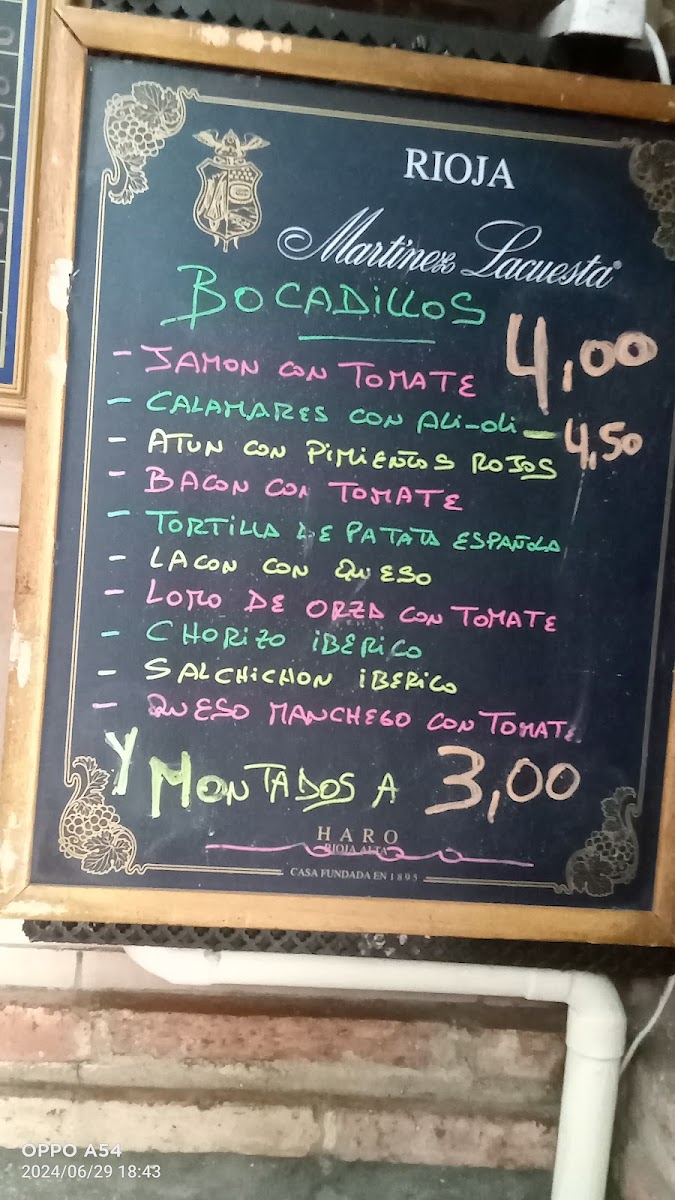 RIOJA
Martinez Lacuesta®
BOCADILLOS
4,00
- JAMON CON TOMATE
- CALAMARES CON ALi-oli - 4,50
- ATUN CON PIMIENTOS ROJOS
- BACON CON TOMATE
- TORTILLA DE PATATA ESPAÑOLA
- LACON CON QUESO
- LOMO DE ORZA CON TOMATE
- CHORIZO iBERiCO
- SALCHICHON iBERiCO
- QUESO MANCHEGO CON TOMATE
Y MONTADOS A 3,00
HARO
RIOJA ALTA
CASA FUNDADA EN 1895
OPPO A54
2024/06/29 18:43